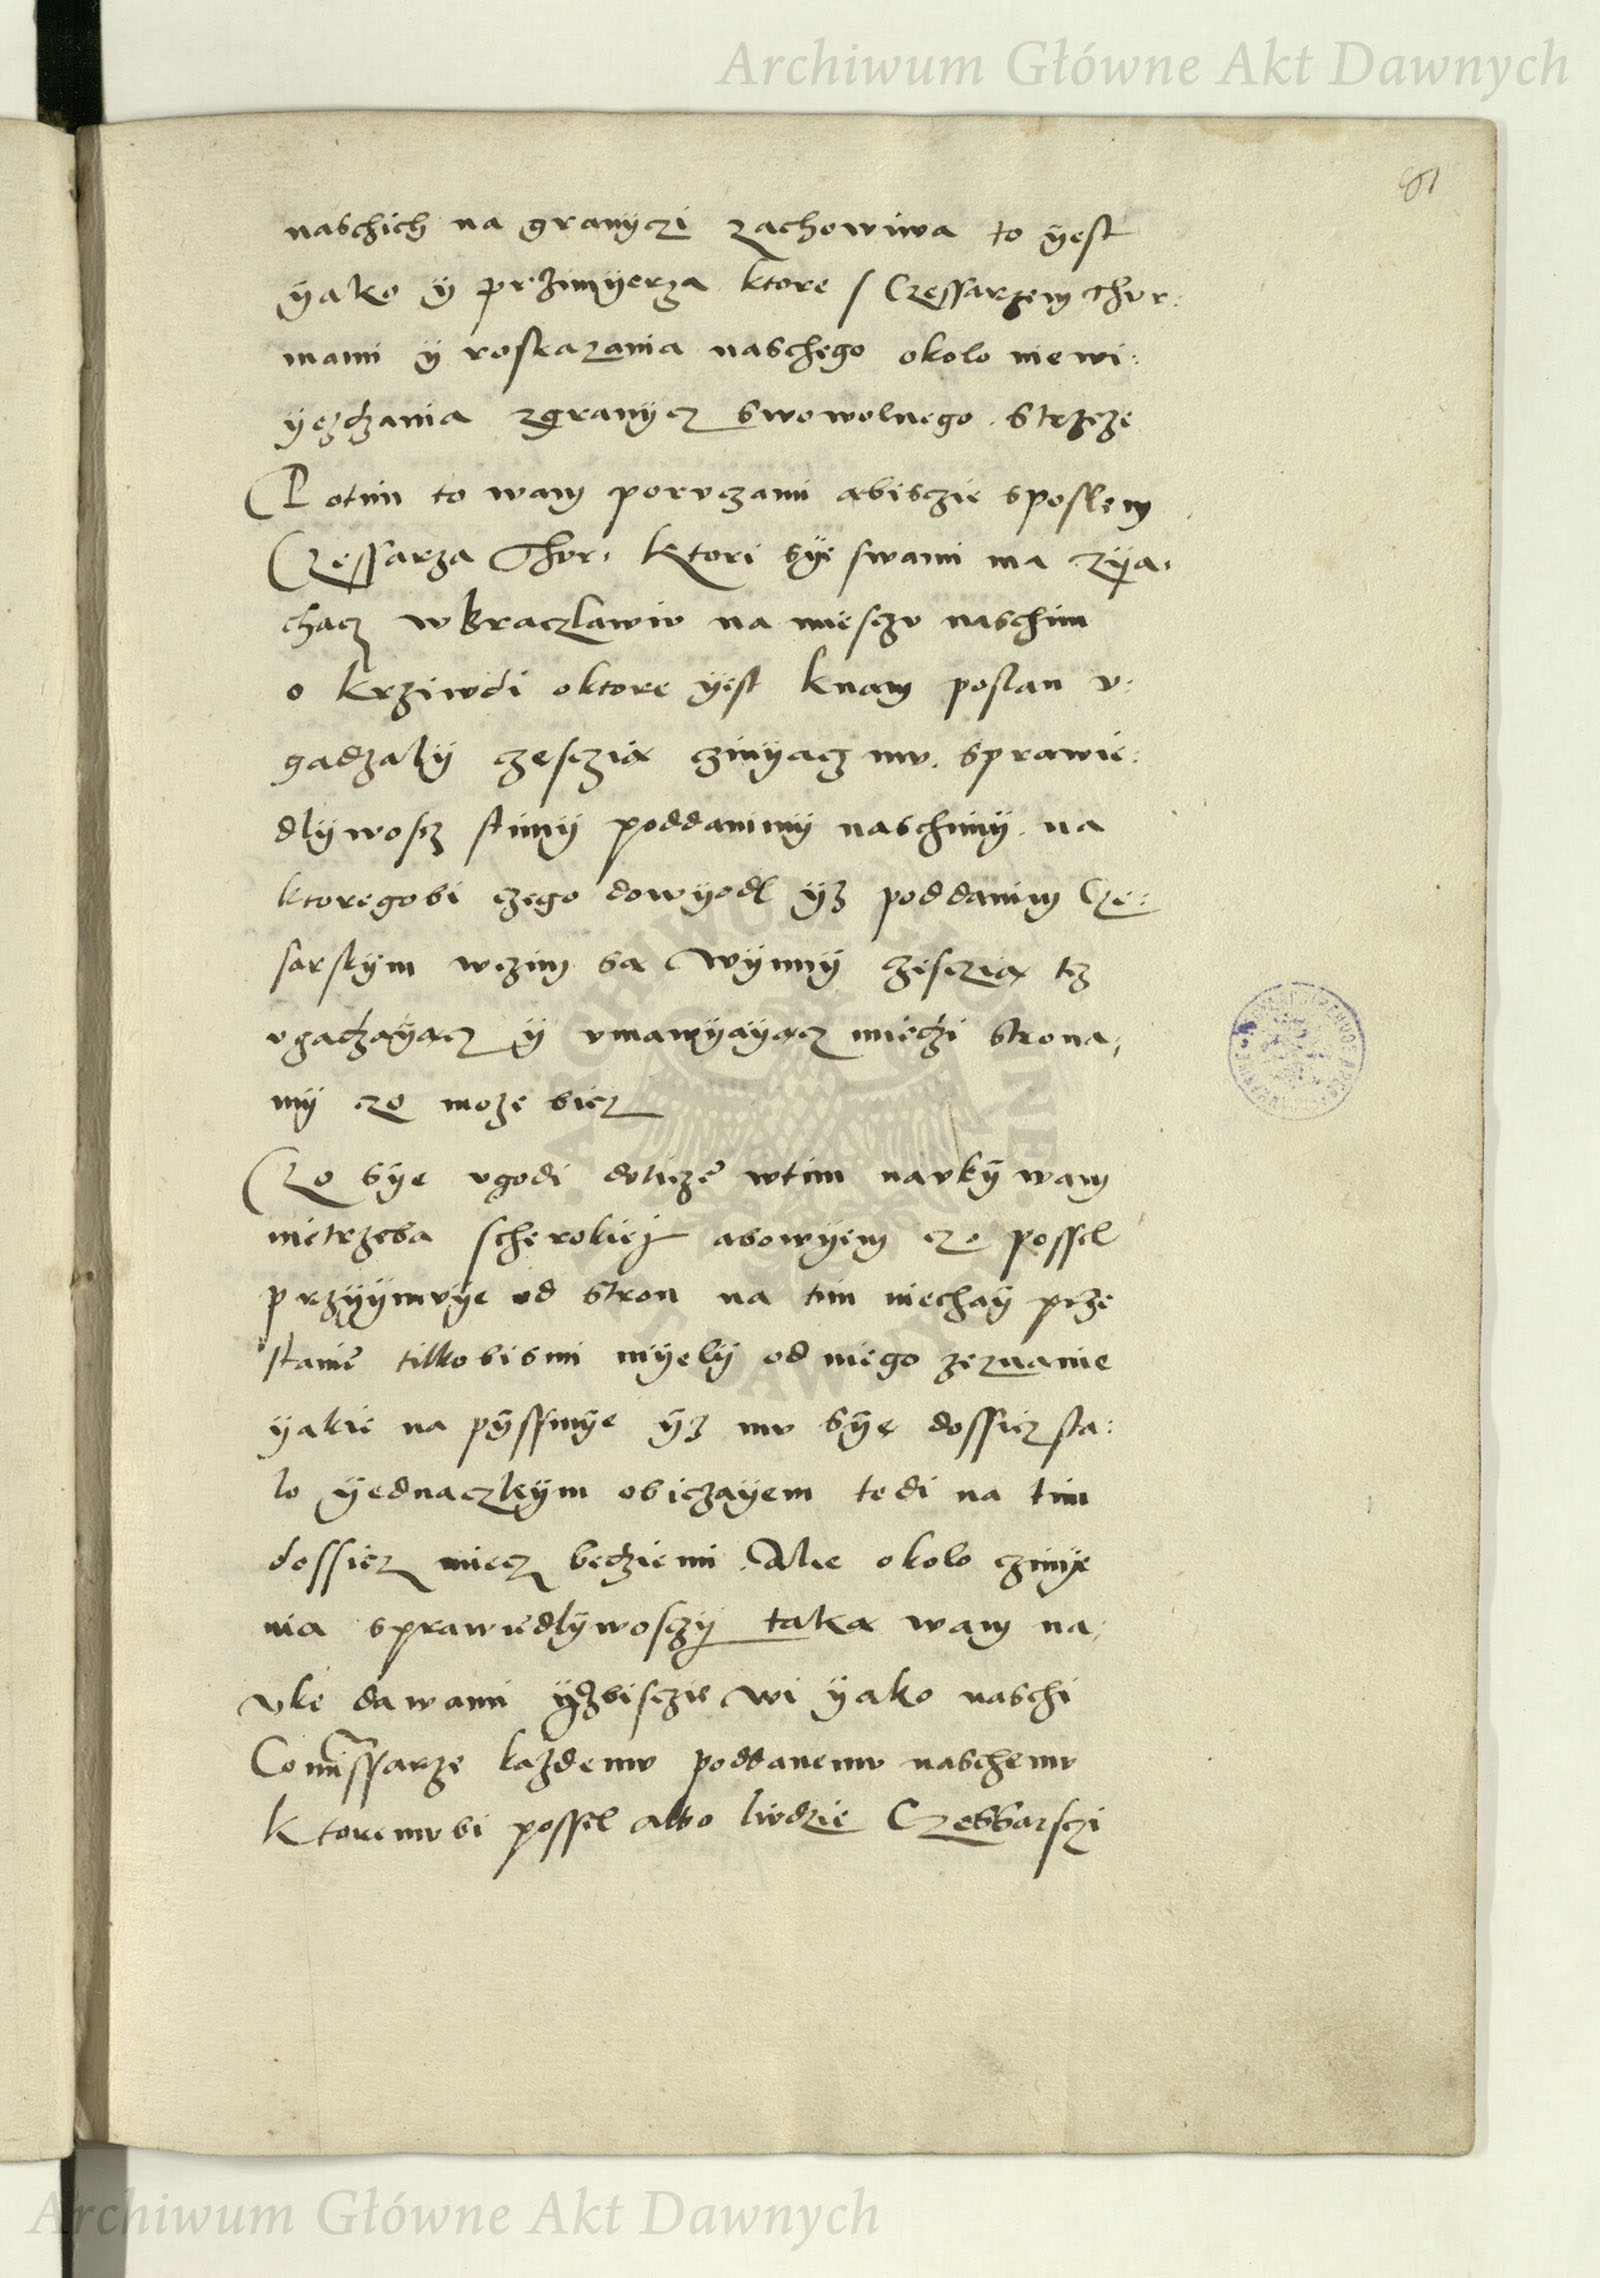 Archiwum Główne Akt Dawnych
81
naschich na granyczi zachowiwa to yest
yako y przimyerza ktore s Czessarzem Thur:
mami y roskazania naschego okolo niewi:
yezdzania zgranycz swowolnego strzeze
Potim to wam poruczami abisczie sposlem
Czessarza Thur: ktori sye swami ma zya:
chacz wBraczlawiu na miesczu naschim
o krziwdi oktore yest knam poslan v:
gadzaly czesczia czinyacz mu sprawie:
dlywoscz stimy poddanimy naschimy na
ktoregobi czego dowyodl yz poddanim Cze:
sarskym wczim sa wynny czesczia tez
vgadzayacz y vmawyayacz miedzi strona:
my czo moze bicz
Czo sye vgodi doticze wtim nauky wam
nietrzeba scherokiej abowyem czo possel
przyymuye od stron na tim niechay prze
stanie tilkobismi myely od niego zeznanie
yakie na pyssmye yz mu sye dossicz sta:
lo yednaczkym obiczayem tedi na tim
dossicz miecz bedziemi Ale okolo czinye
nia sprawiedlywosczy taka wam na:
vke dawami yzbisczie wi yako naschi
Comissarze kazdemu poddanemu naschemu
ktoremubi possel albo liudzie Czessarsczi
Archiwum Główne Akt Dawnych